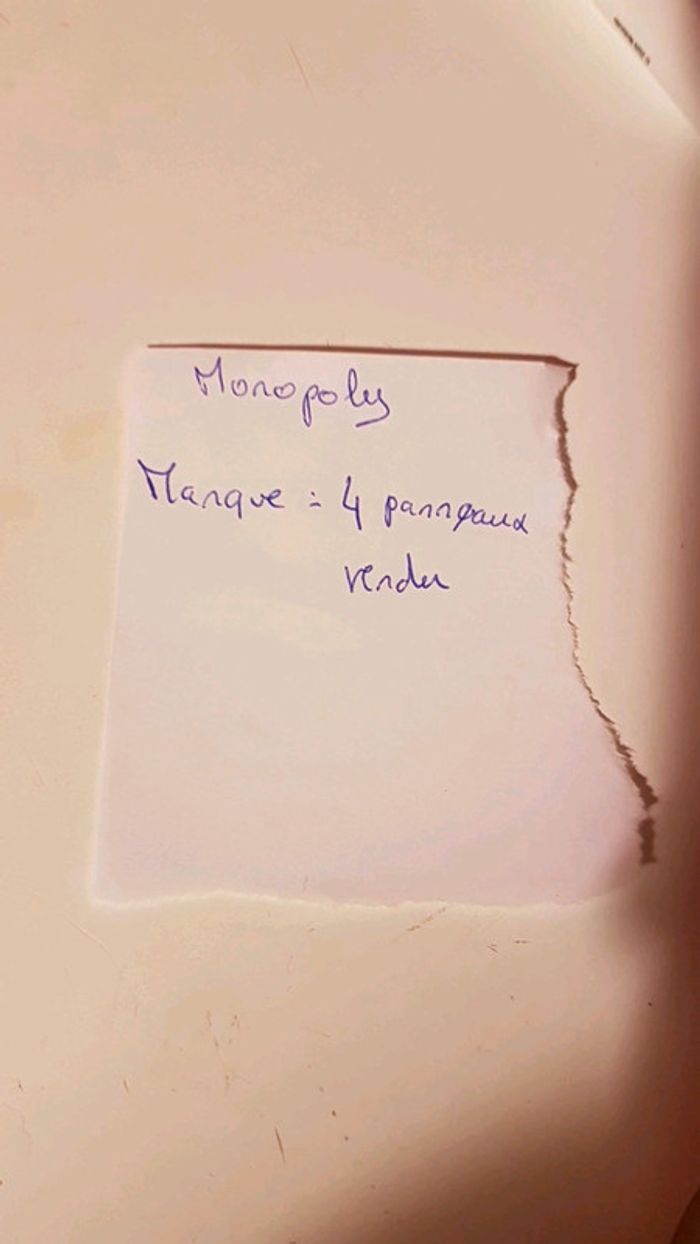 Monopoly
Manque : 4 panneaux
vendu